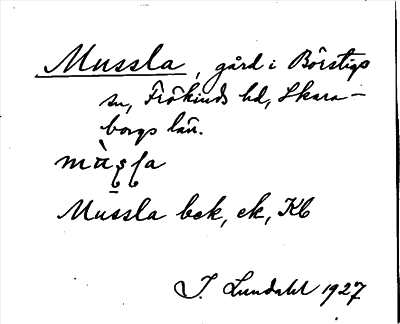 Mussla, gård i Börstigs
sn, Frökinds hd, Skara-
borgs län.
Mussla bek, ek, Kb
I. Lundahl 1927